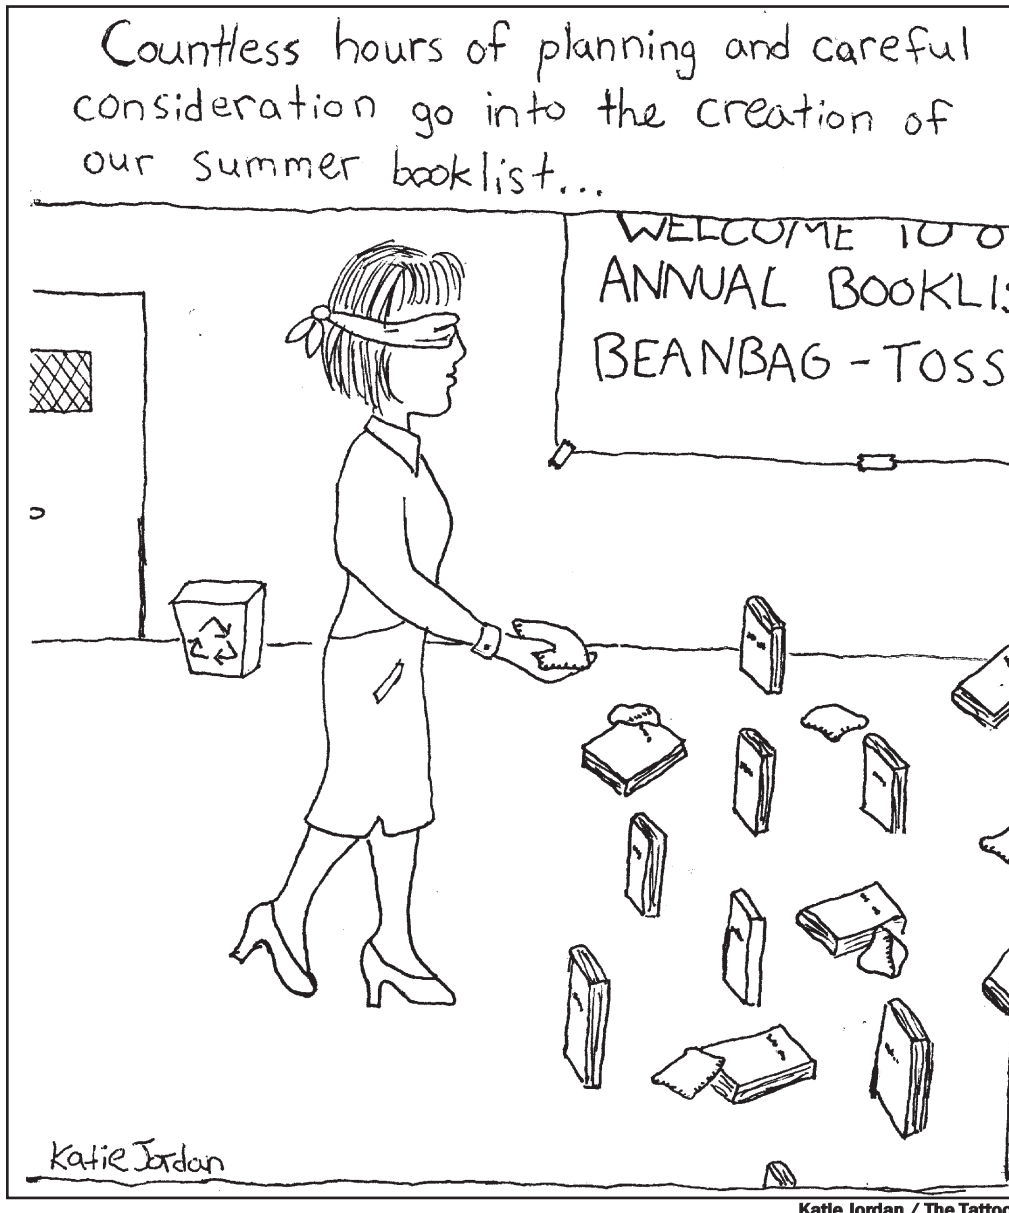 Countless hours of planning and careful
consideration go into the creation of
our summer booklist...
WELCOME TO O
ANNUAL BOOKLIS
BEANBAG-TOSS
Katie Jordan
Katie Jordan / The Tattoo